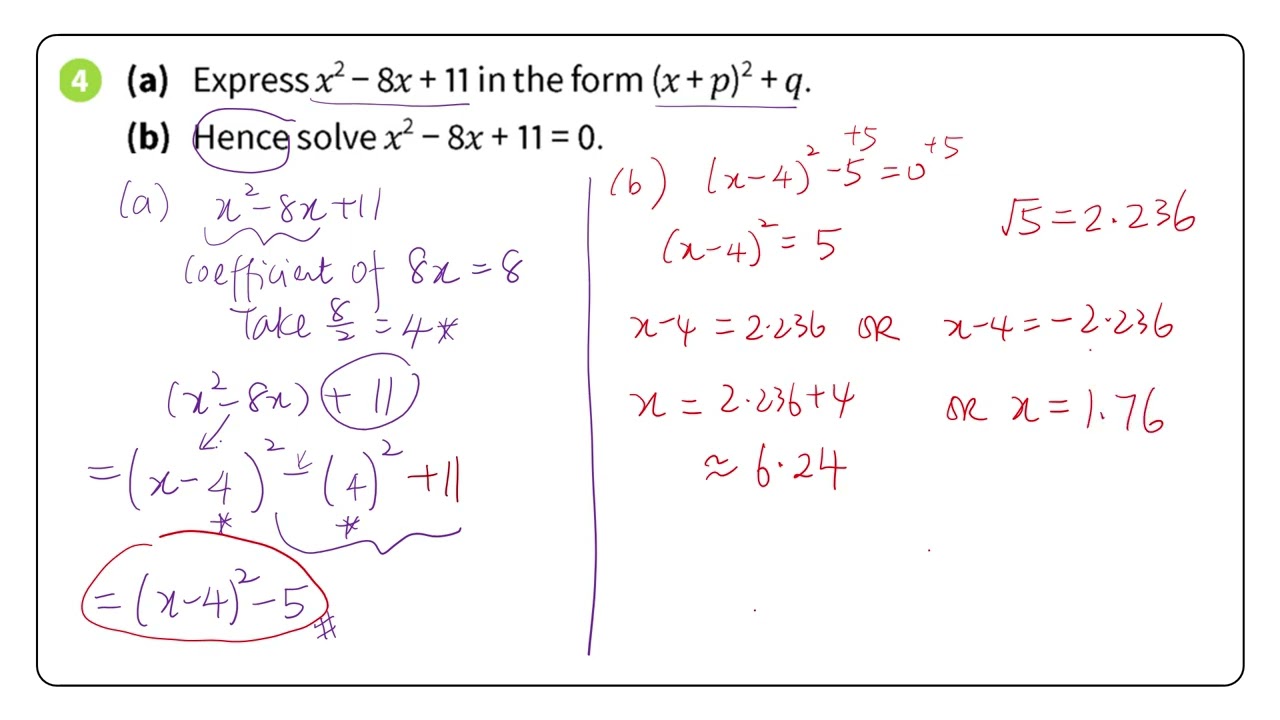 4 (a) Express x² − 8x + 11 in the form (x + p)² + q.
(b) Hence solve x² − 8x + 11 = 0.
(a) x² − 8x + 11
Coefficient of 8x = 8
Take 8/2 = 4*
(x² − 8x) + 11
= (x − 4)² − (4)² + 11
* *
= (x − 4)² − 5 #
(b) (x − 4)² − 5 +5 = 0 +5
(x − 4)² = 5
√5 = 2.236
x − 4 = 2.236 OR x − 4 = − 2.236
x = 2.236 + 4 OR x = 1.76
≈ 6.24